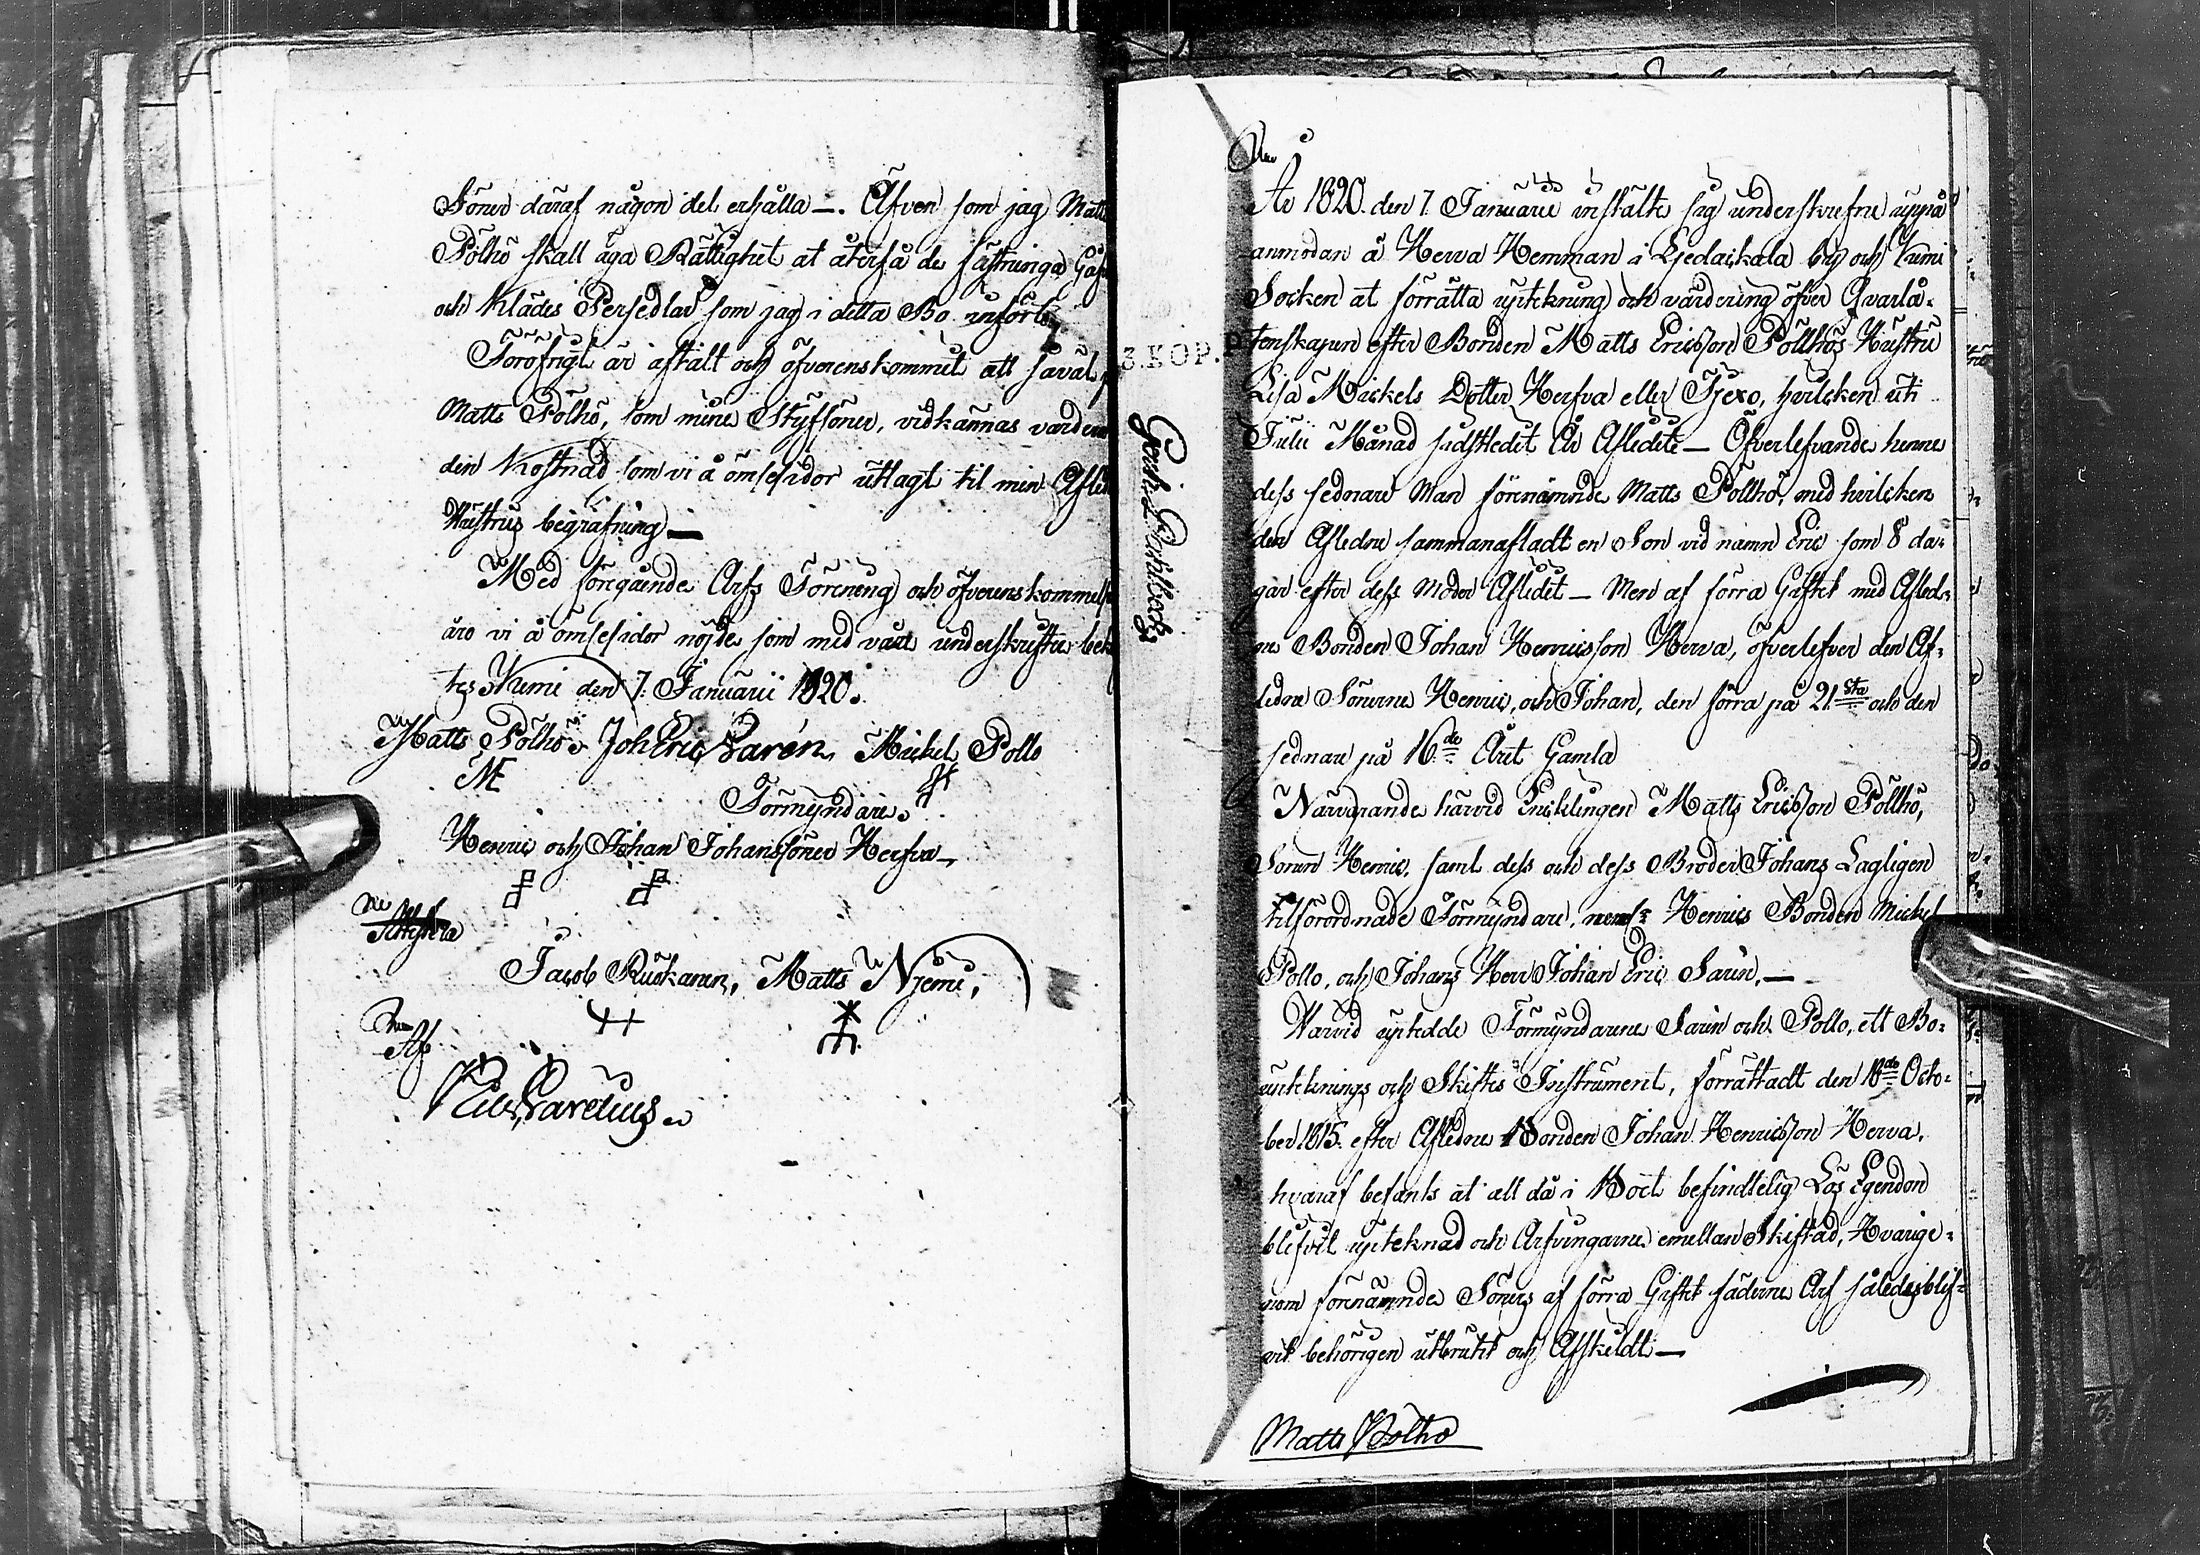 Söner däraf någon del erhålla —. Äfven som jag Matts
Pölhö skall äga Rättighet at återfå de fästninga Gåf
och Klädes Persedlar som jag i detta Bo infört
Töröfrigt är aftält och öfverenskommit att såväl
Matts Pölhö, som mine Styfsöner, vidkännas värder
den Kostnad som vi å ömsesidor utlagt til min Afled
Hustrus begrafning —
Med föregående Arfs Förening och öfverenskommelse
äro vi å ömsesidor nöjde som med vårt underskrifter bek
tes Kemi den 7. Januarii 1820.
Matts Pölhö, Joh Eric Sarén, Mickel Pollo
ME
Förmyndare.
Henric och Johan Johanssöner Herfva —
Attestera
Jacob Ruokanen, Matts Niemi,
Af
Nils Zaretius
År 1820. den 7. Januarii instälte sig underskrefne uppå
anmodan å Herva Hemman i Liedackala by och Kemi
Socken at förrätta upteckning och värdering öfver Qvarlå-
tenskapen efter Bonden Matts Ericsson Pöllhös Hustru
Lisa Mickels Dotter Herfva eller Tjexo, hvilcken uti
Julii Månad sidstledit År Afledit — Öfverlefvande henne
dess sednare Man förenämnde Matts Pöllhö, med hvilcken
den Afledne sammanafladt en Son vid namn Eric som 8 da-
gar efter dess moder Afledit — Men af förra Giftet med Afled-
ne Bonden Johan Henricsson Herva, öfverlefver den Af-
ledne Sönerne Henric, och Johan, den förra på 21:sta och den
sednare på 16:de Året Gamla
Närvarande härvid Encklingen Matts Ericsson Pöllhö,
Sonen Henric, samt dess och dess Broder Johans Lagligen
tilförordnade Förmyndare, neml: Henrics Bonden Mickel
Pollo, och Johans Herr Johan Eric Sarén, —
Härvid uptedde Förmyndarene Sarén och Pollo, ett Bo-
upteknings och Skiftes Instrument, förrättadt den 18:de Octo-
ber 1815. efter Afledne Bonden Johan Henricsson Herva.
hvaraf befants at all då i Boet befindtelig Lös Egendom
blifvit upteknad och Arfvingarne emellan Skiftad, Hvarige-
nom förenämnde Söners af förra Giftet fäderne Arf således blif-
vit behörigen utbrutit och Afskildt —
Matts Pölhö
3.KOP.